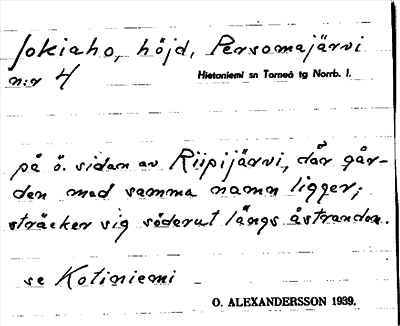 Jokiaho, höjd, Persomajärvi
n:r 4 Hietaniemi sn Torneå tg Norrb. l.
på ö. sidan av Riipijärvi, där går-
den med samma namn ligger;
sträcker sig söderut längs åstranden.
se Kotiniemi
O. ALEXANDERSSON 1939.